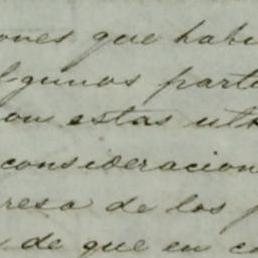 ones que habi
algunos parti
con estas ult
consideracion
resa de los p
de que en co